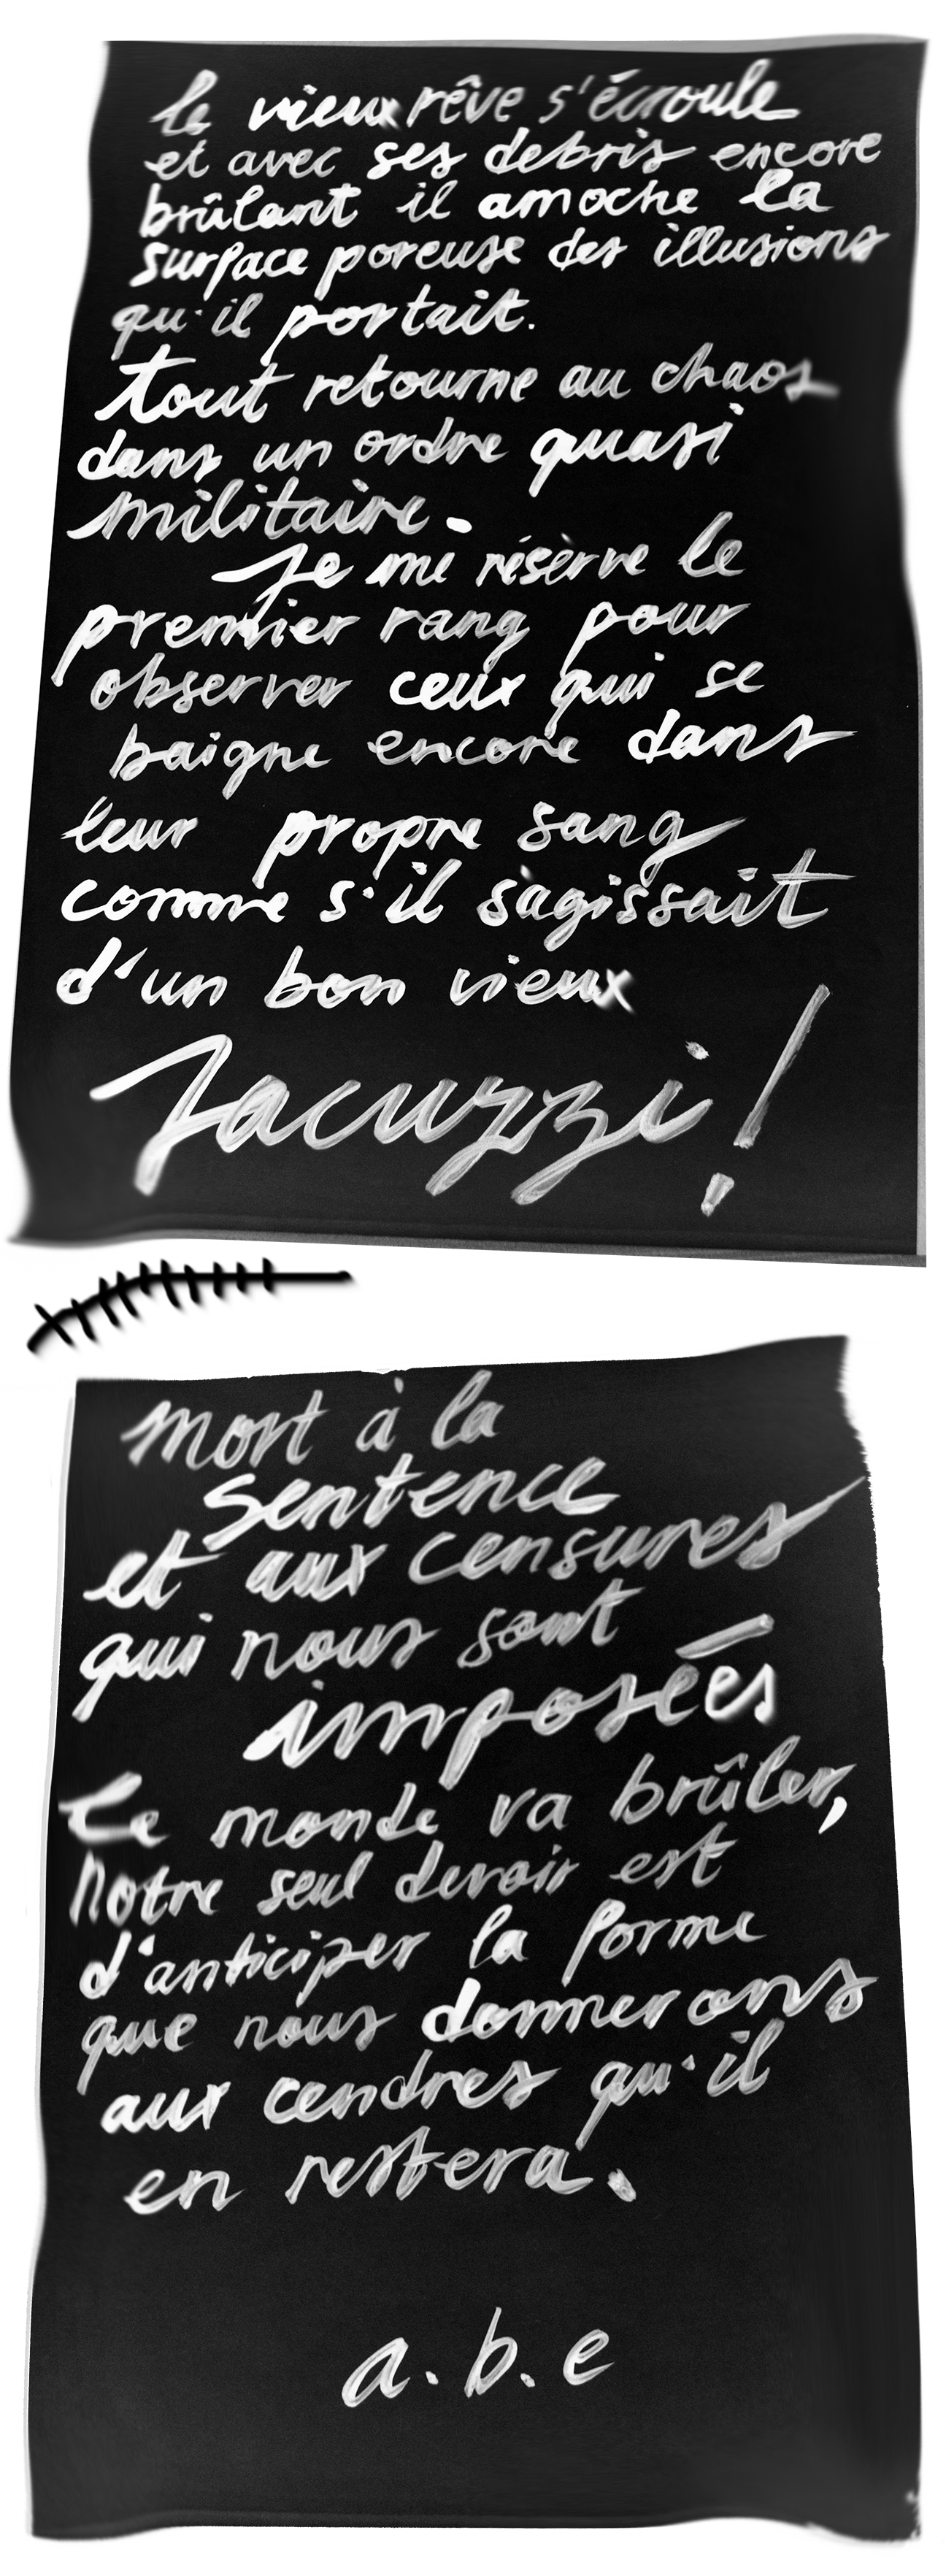 le vieux rêve s'écroule
et avec ses debris encore
brûlant il amoche la
surface poreuse des illusions
qu'il portait.
tout retourne au chaos
dans un ordre quasi
militaire.
Je me résèrve le
premier rang pour
observer ceux qui se
baigne encore dans
leur propre sang
comme s'il s'agissait
d'un bon vieux
Jacuzzi!
mort à la
sentence
et aux censures
qui nous sont
imposées
Le monde va brûler,
Notre seul devoir est
d'anticiper la forme
que nous donnerons
aux cendres qu'il
en restera.
a.b.e